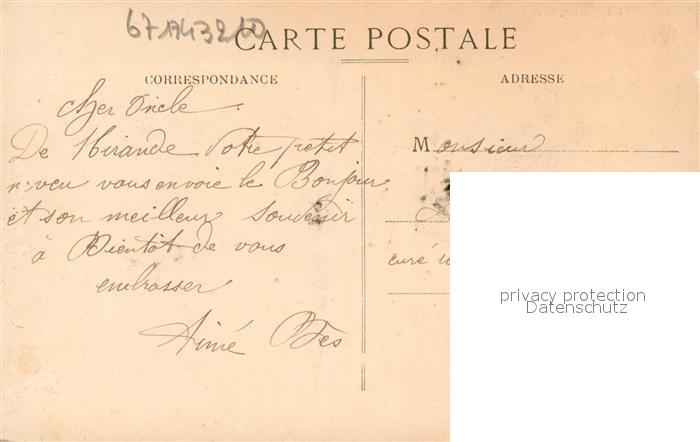 67143210
CARTE POSTALE
CORRESPONDANCE
cher Oncle.
De Mirande Votre petit
neveu vous envoie le Bonjour
et son meilleur Souvenir
à Bientôt de vous
embrasser
Aimé
ADRESSE
Monsieur
curé
privacy protection
Datenschutz